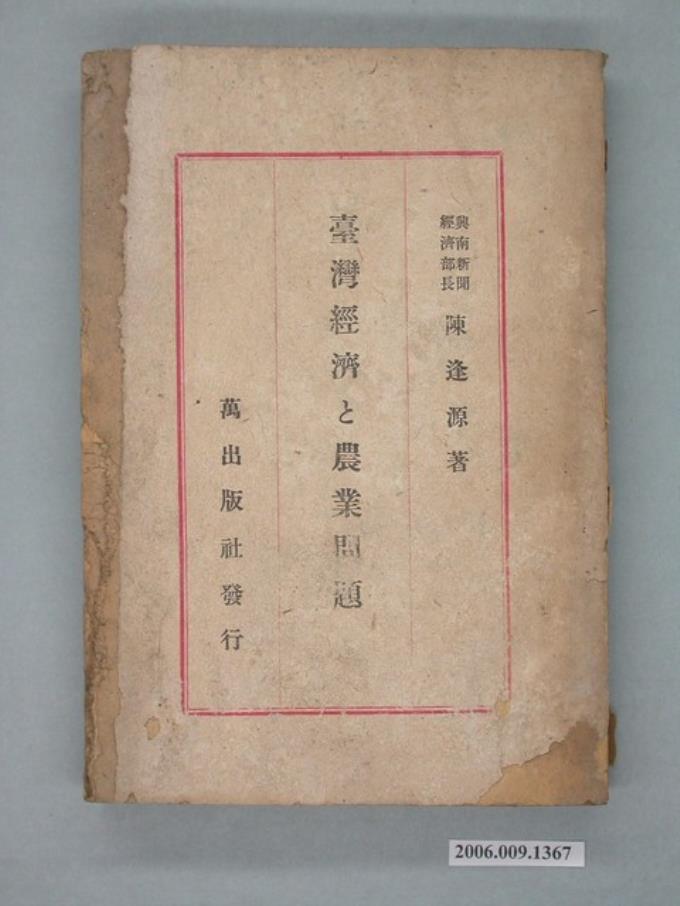 興南新聞
經濟部長
陳逢源著
臺灣經濟と農業問題
萬出版社發行
2006.009.1367